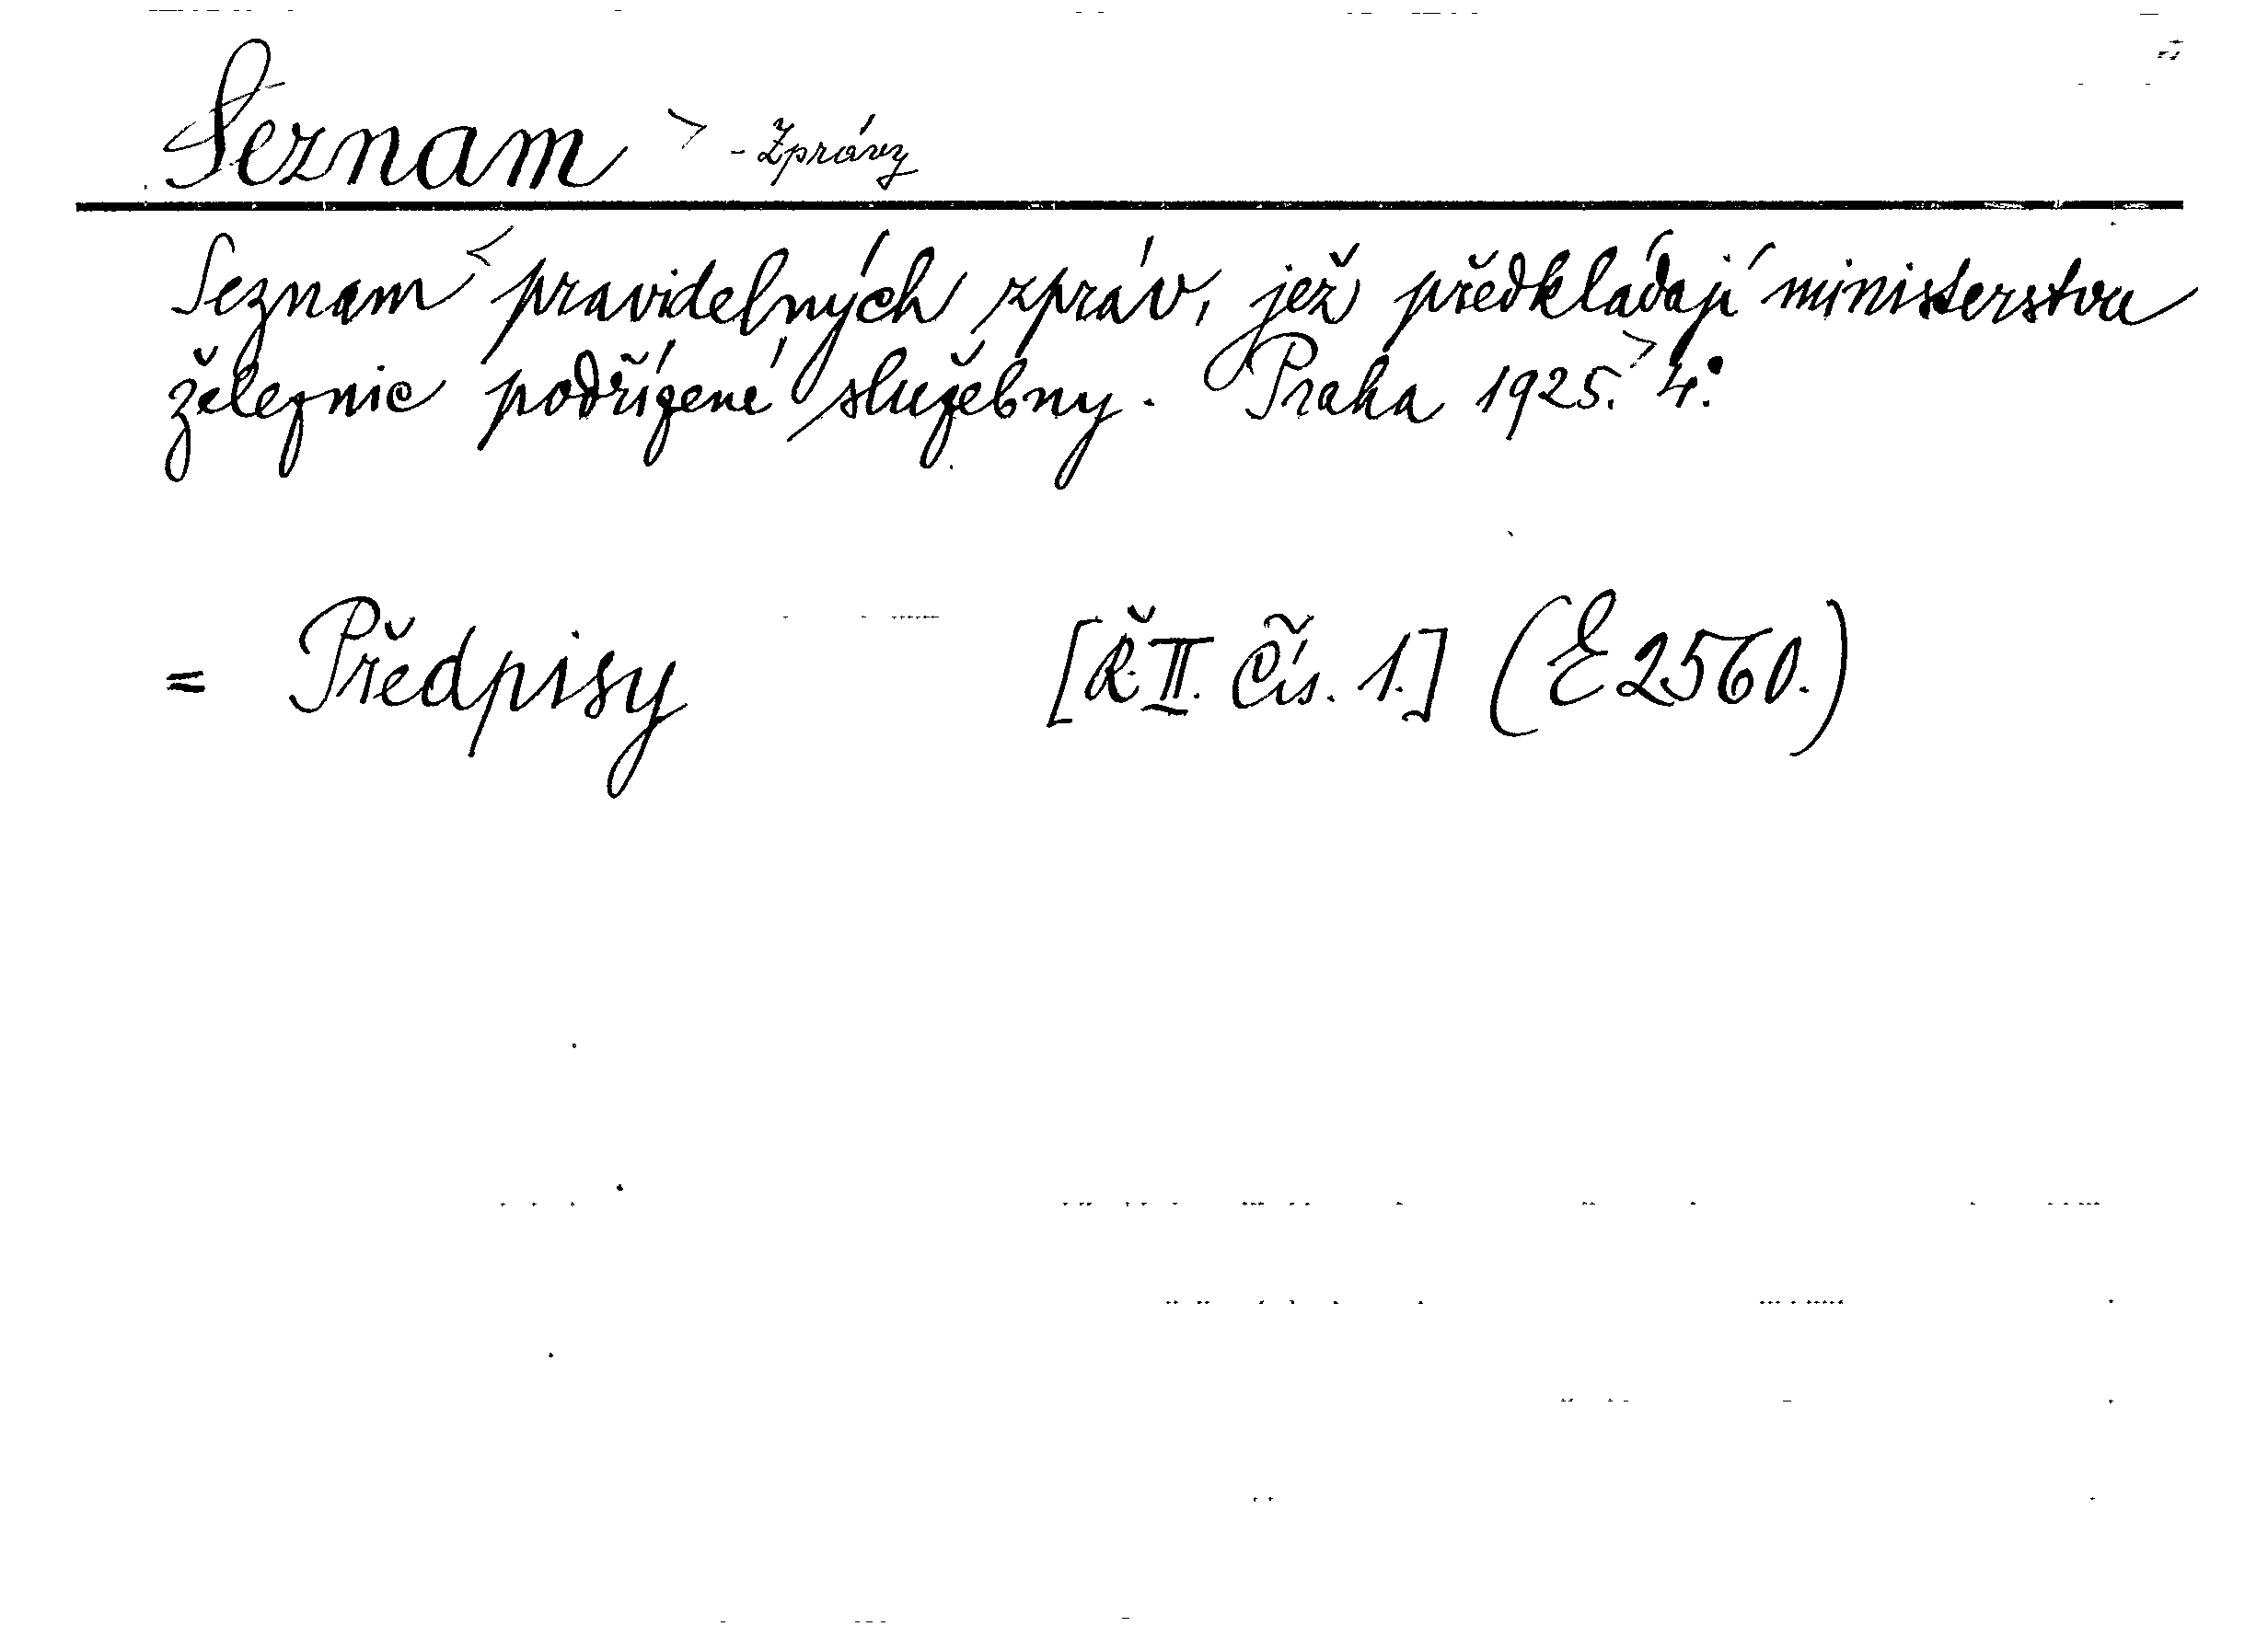 Seznam > - Zprávy
Seznam < pravidelných zpráv, jež předkládají ministerstvu
železnic podřízené služebny. Praha 1925. > 4.°
= Předpisy [Ř.II. Čís. 1.] (E 2560.)